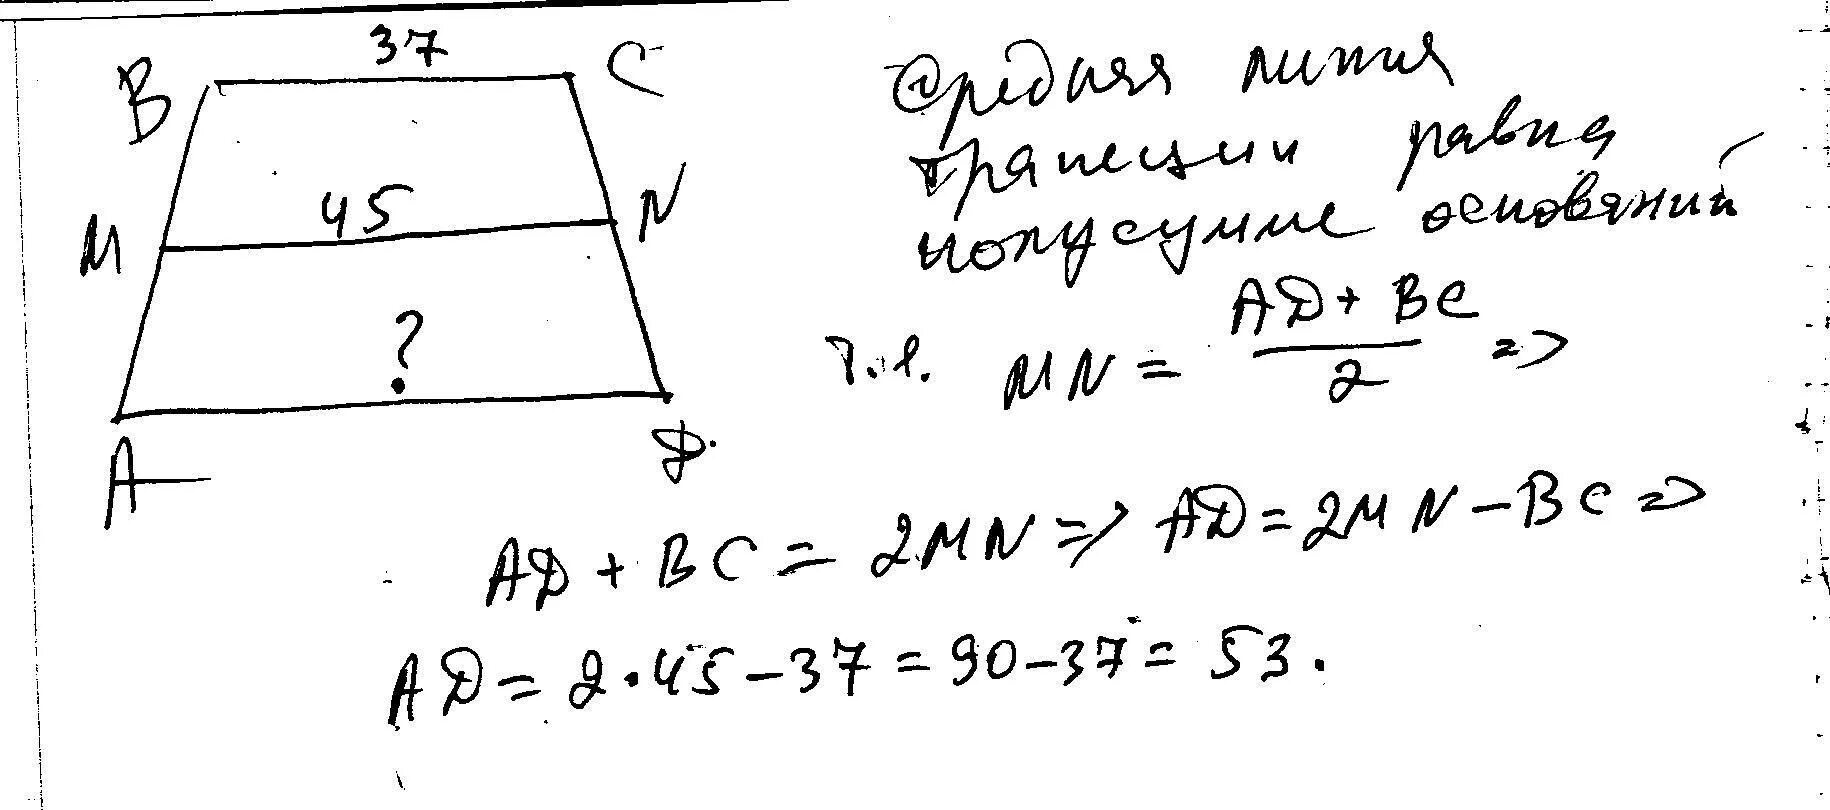 37
B
C
Средняя линия
трапеции равна
полусумме оснований
M
45
N
?
A
D
т.е. MN = (AD + BC)/2 =>
AD + BC = 2MN => AD = 2MN - BC =>
AD = 2·45 - 37 = 90 - 37 = 53.